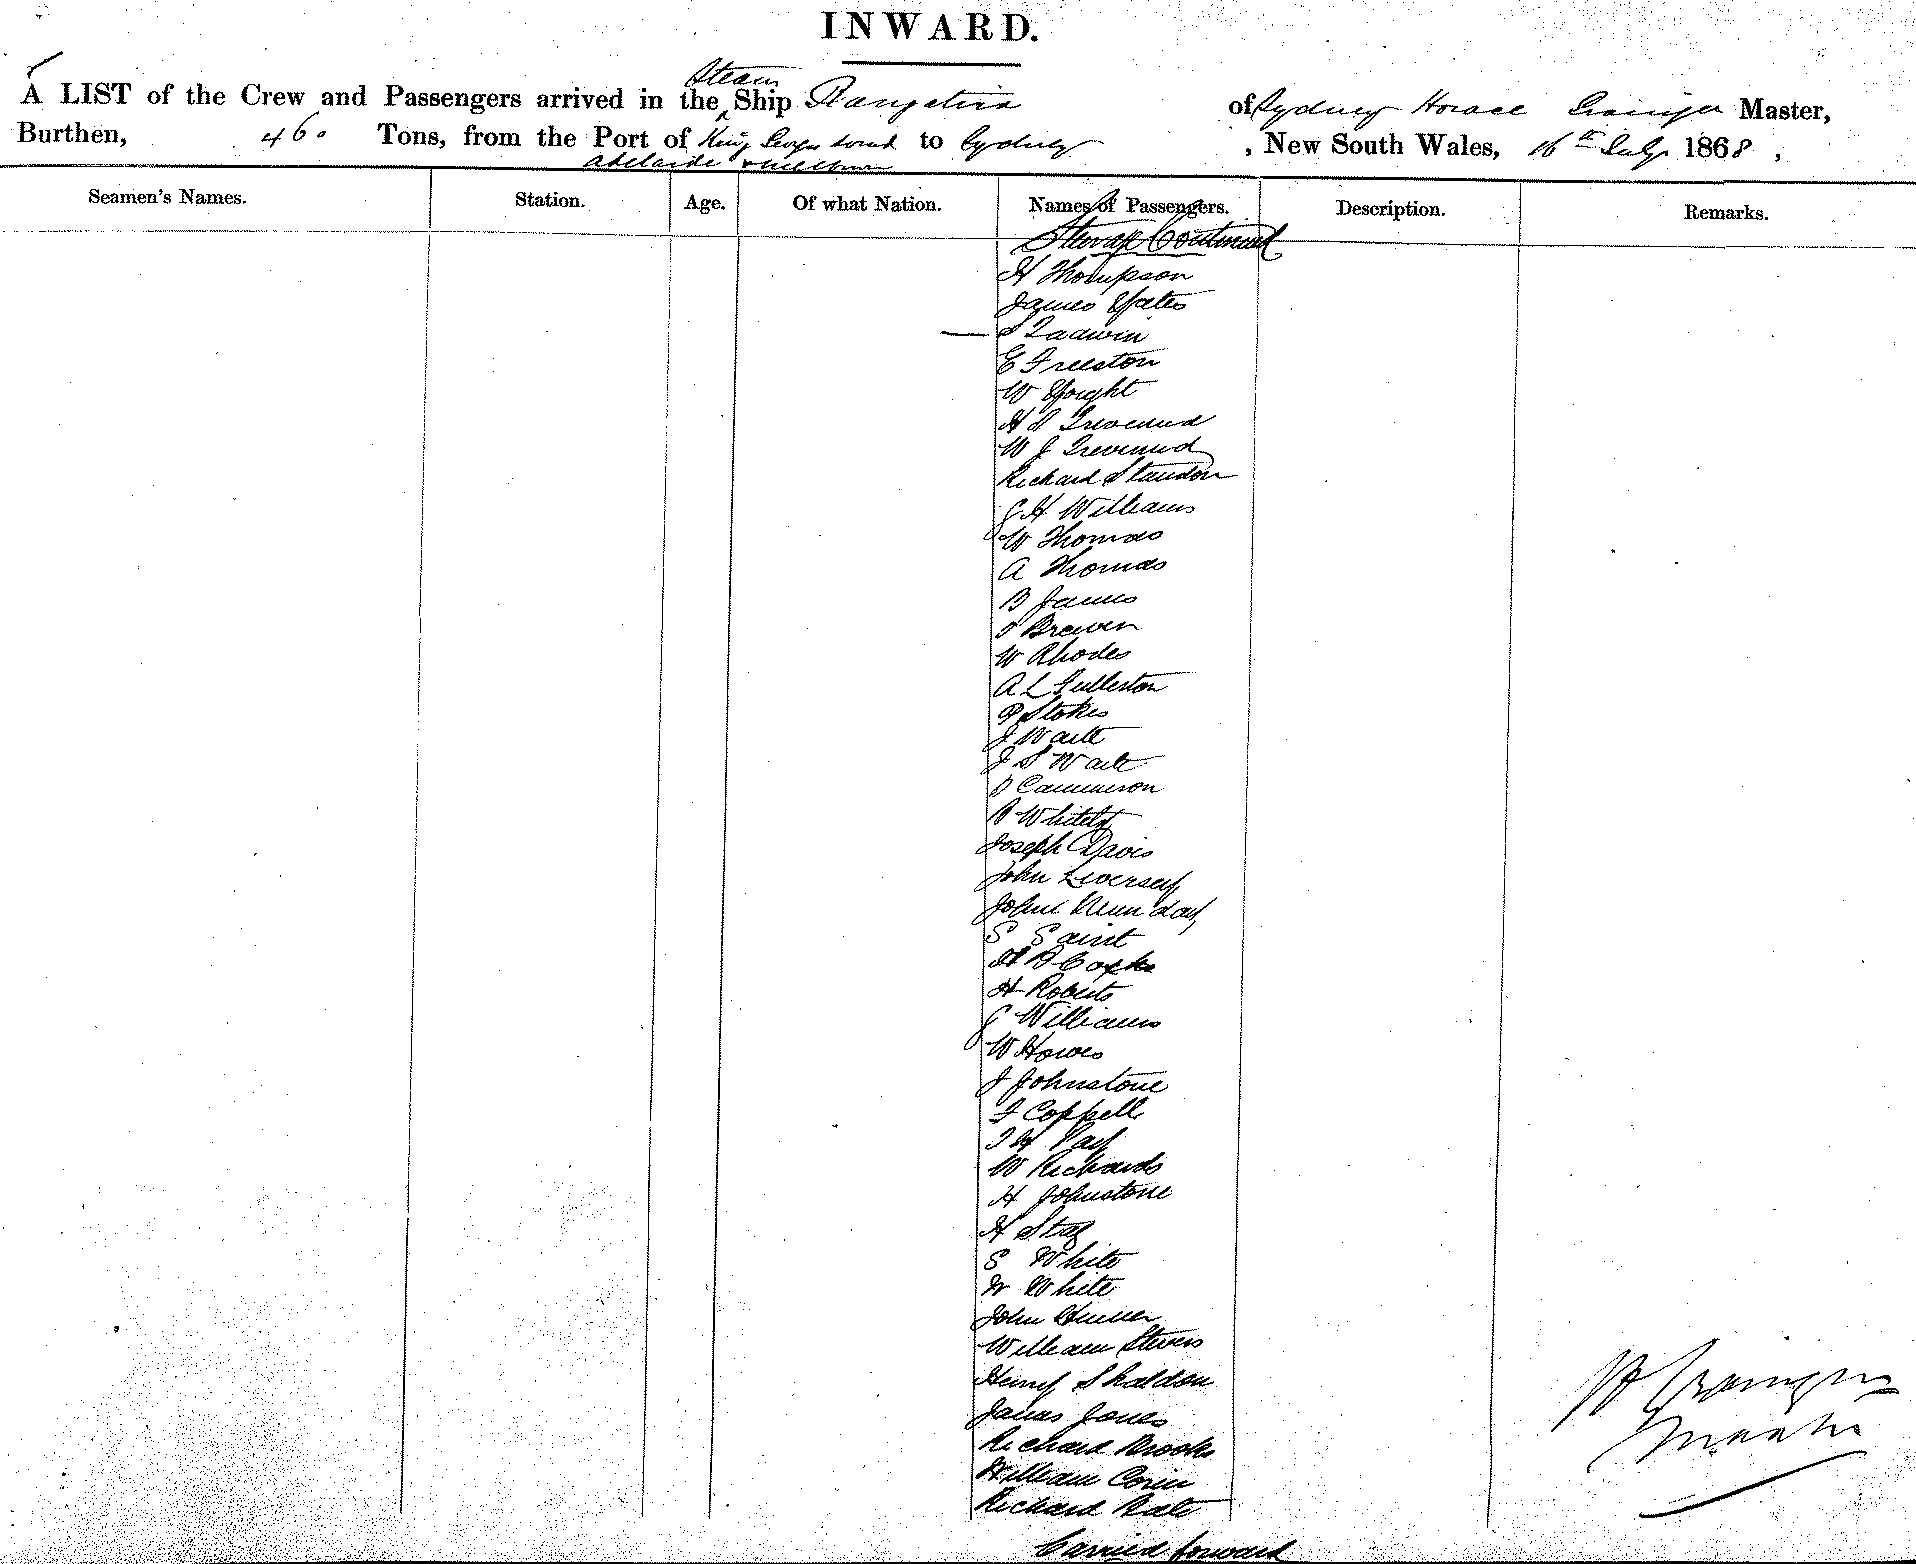 INWARD.
Steam
A LIST of the Crew and Passengers arrived in the Ship Rangatira of Sydney Horace Grainger Master,
Burthen, 460 Tons, from the Port of King Georges Sound to Sydney , New South Wales, 16th July 1868 ,
Adelaide & Melbourne
Seamen's Names. Station. Age. Of what Nation. Names of Passengers. Description. Remarks.
Steerage Continued
H Thompson
James Yates
S Ladwin
E Freeston
W Yorght
H S
W J
Richard Standon
G H Williams
W Thomas
A Thomas
B James
Brewer
W Rhodes
A L Fullerton
P Stokes
J Waite
J S Waite
D Cammeron
Whitely
Joseph Davis
John Liversey
John Munday
S Saint
H B
H Roberts
G Williams
W Howes
J Johnstone
F Coppell
W Richards
H Johnstone
H
S White
W White
John
William Stevens
Henry Shaldon
James Jones
Richard Brooks
William Corin
Richard Bate
Carried forward
H Grainger
Master